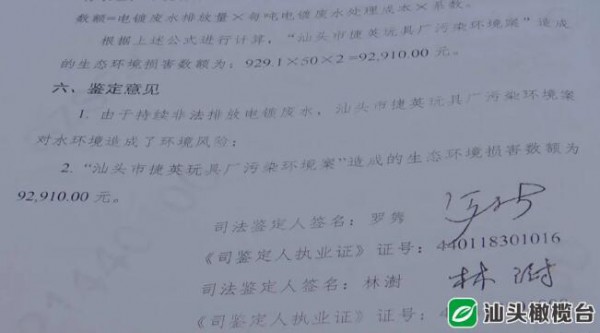 数额=电镀废水排放量×每吨电镀废水处理成本×系数。
根据上述公式进行计算，“汕头市捷英玩具厂污染环境案”造成
的生态环境损害数额为：929.1×50×2=92,910.00 元。
六、鉴定意见
1. 由于持续非法排放电镀废水，汕头市捷英玩具厂污染环境案
对水环境造成了环境风险；
2. “汕头市捷英玩具厂污染环境案”造成的生态环境损害数额为
92,910.00 元。
司法鉴定人签名：罗隽
《司鉴定人执业证》证号：440118301016
司法鉴定人签名：林澍 林澍
《司鉴定人执业证》证号：4
汕头橄榄台